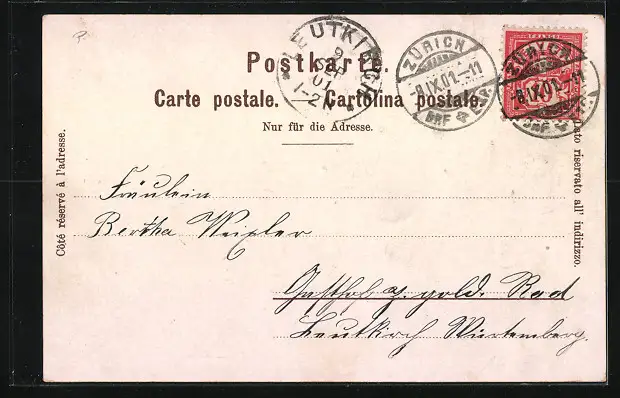 Postkarte.
Carte postale. — Cartolina postale.
Nur für die Adresse.
Côté réservé à l'adresse.
Lato riservato all' indirizzo.
LEUTKIRCH
9
SEP
01
1-2 N
ZÜRICH
-8.IX.01.-11
BRF
ZÜRICH
-8.IX.01.-11
BRF
Fräulein
Bertha
Gasthof z. gold. Rad
Leutkirch Würtemberg.